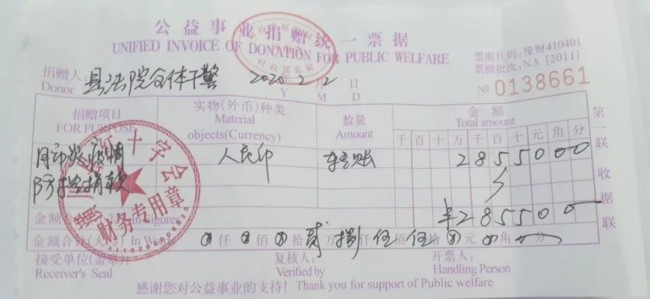 公益事业捐赠统一票据
UNIFIED INVOICE OF DONATION FOR PUBLIC WELFARE
票据代码:豫财410401
票据批次:NA [2011]
№ 0138661
捐赠人: 县法院全体干警 2020 2 2 日
Donor Y M D
捐赠项目 实物(外币)种类 数量 金额
FOR PURPOSE Material objects(Currency) Amount Total amount
千 百 十 万 千 百 十 元 角 分
疫情 人民币 转账 2 8 5 5 0 0 0
防控捐款
金额合 In Figures ¥ 2 8 5 5 0 0
金额合计(大写) In 仟 佰 拾 贰 万 捌 仟 伍 佰 伍 拾 元 角 分
接受单位(盖章) 复核人: 开票人:
Receiver's Seal Verified by Handling Person
感谢您对公益事业的支持! Thank you for support of Public welfare
第一联 收据联
十字会
财务专用章